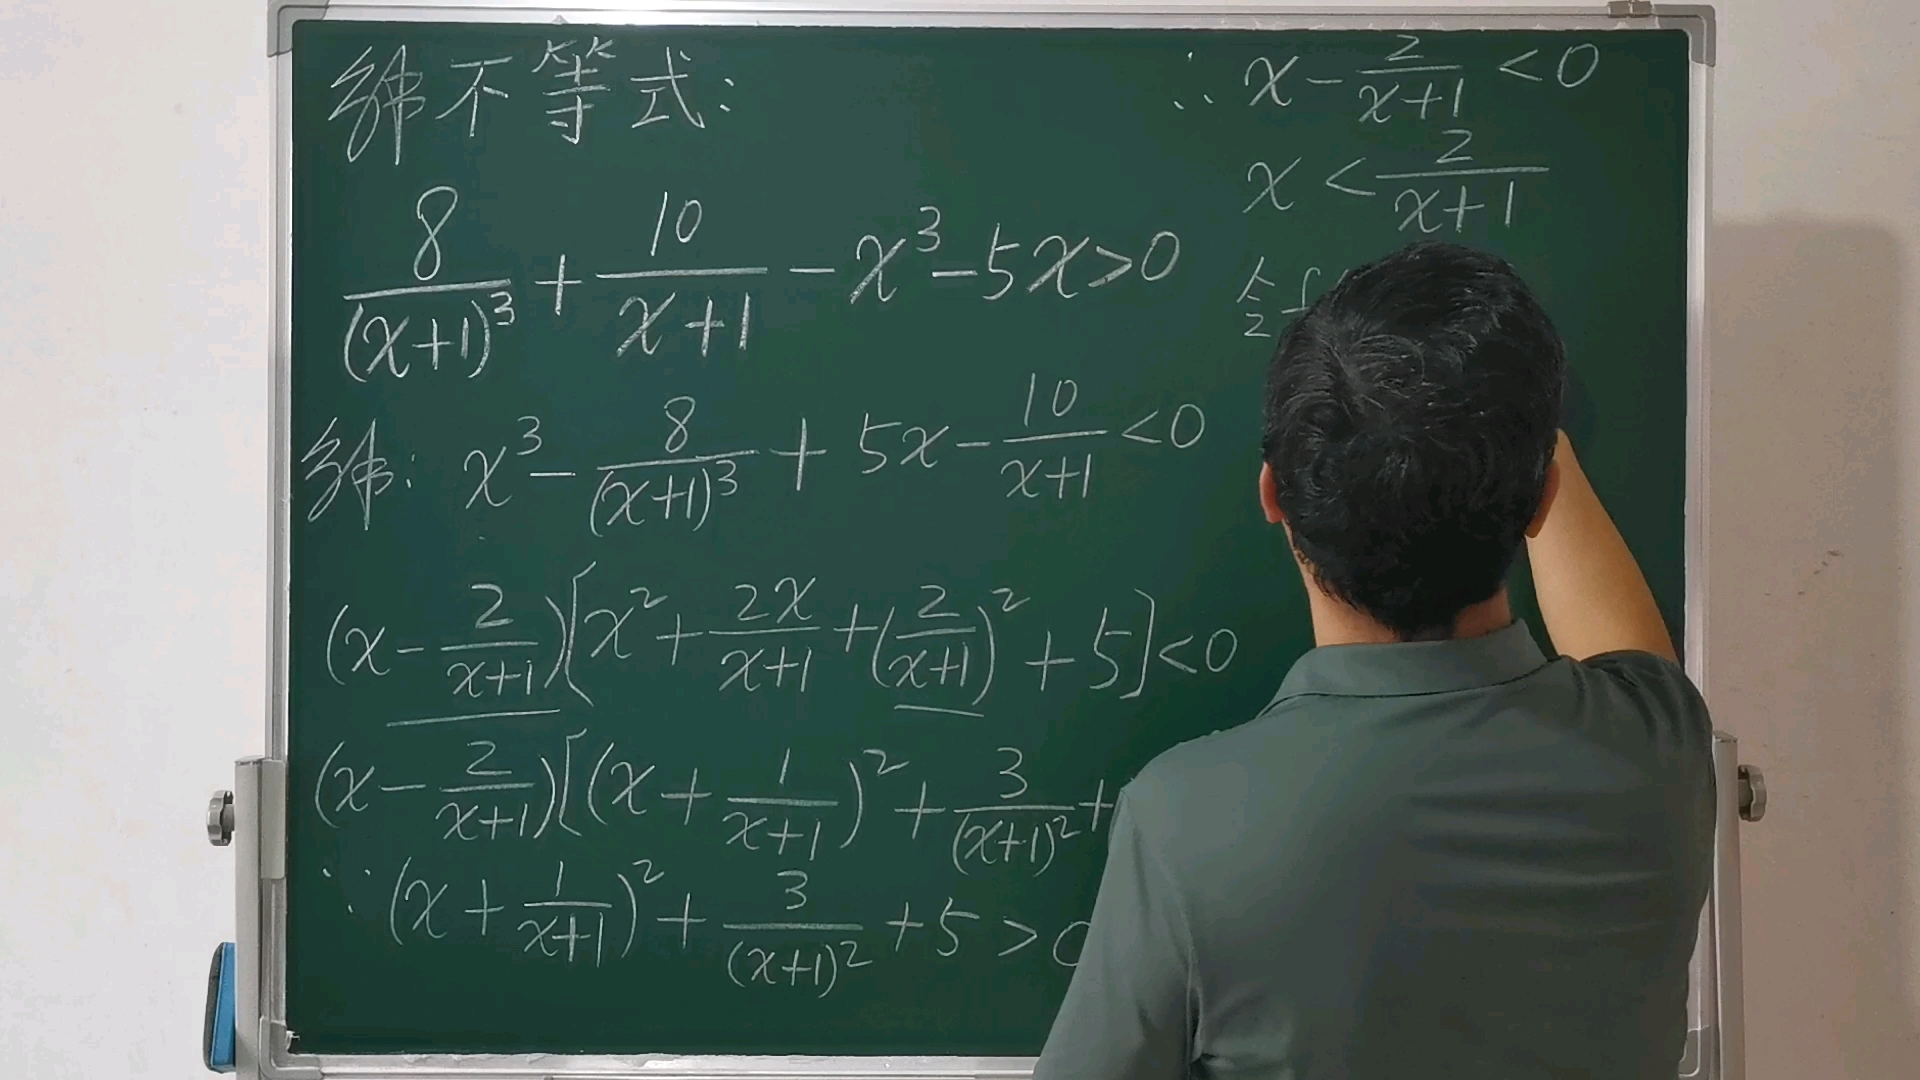 解不等式:
8/(x+1)³ + 10/(x+1) - x³ - 5x > 0
解: x³ - 8/(x+1)³ + 5x - 10/(x+1) < 0
(x - 2/(x+1))[x² + 2x/(x+1) + (2/(x+1))² + 5] < 0
(x - 2/(x+1))[(x + 1/(x+1))² + 3/(x+1)² +
∵ (x + 1/(x+1))² + 3/(x+1)² + 5 > 0
∴ x - 2/(x+1) < 0
x < 2/(x+1)